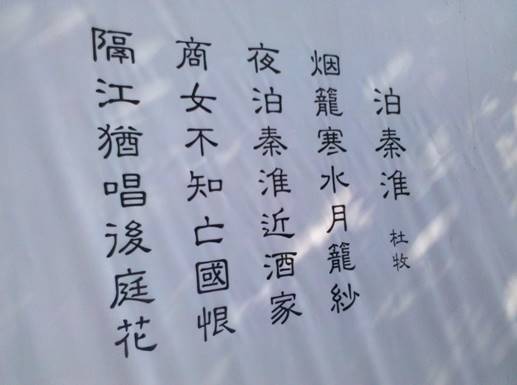 泊秦淮
杜牧
烟籠寒水月籠紗
夜泊秦淮近酒家
商女不知亡國恨
隔江猶唱後庭花